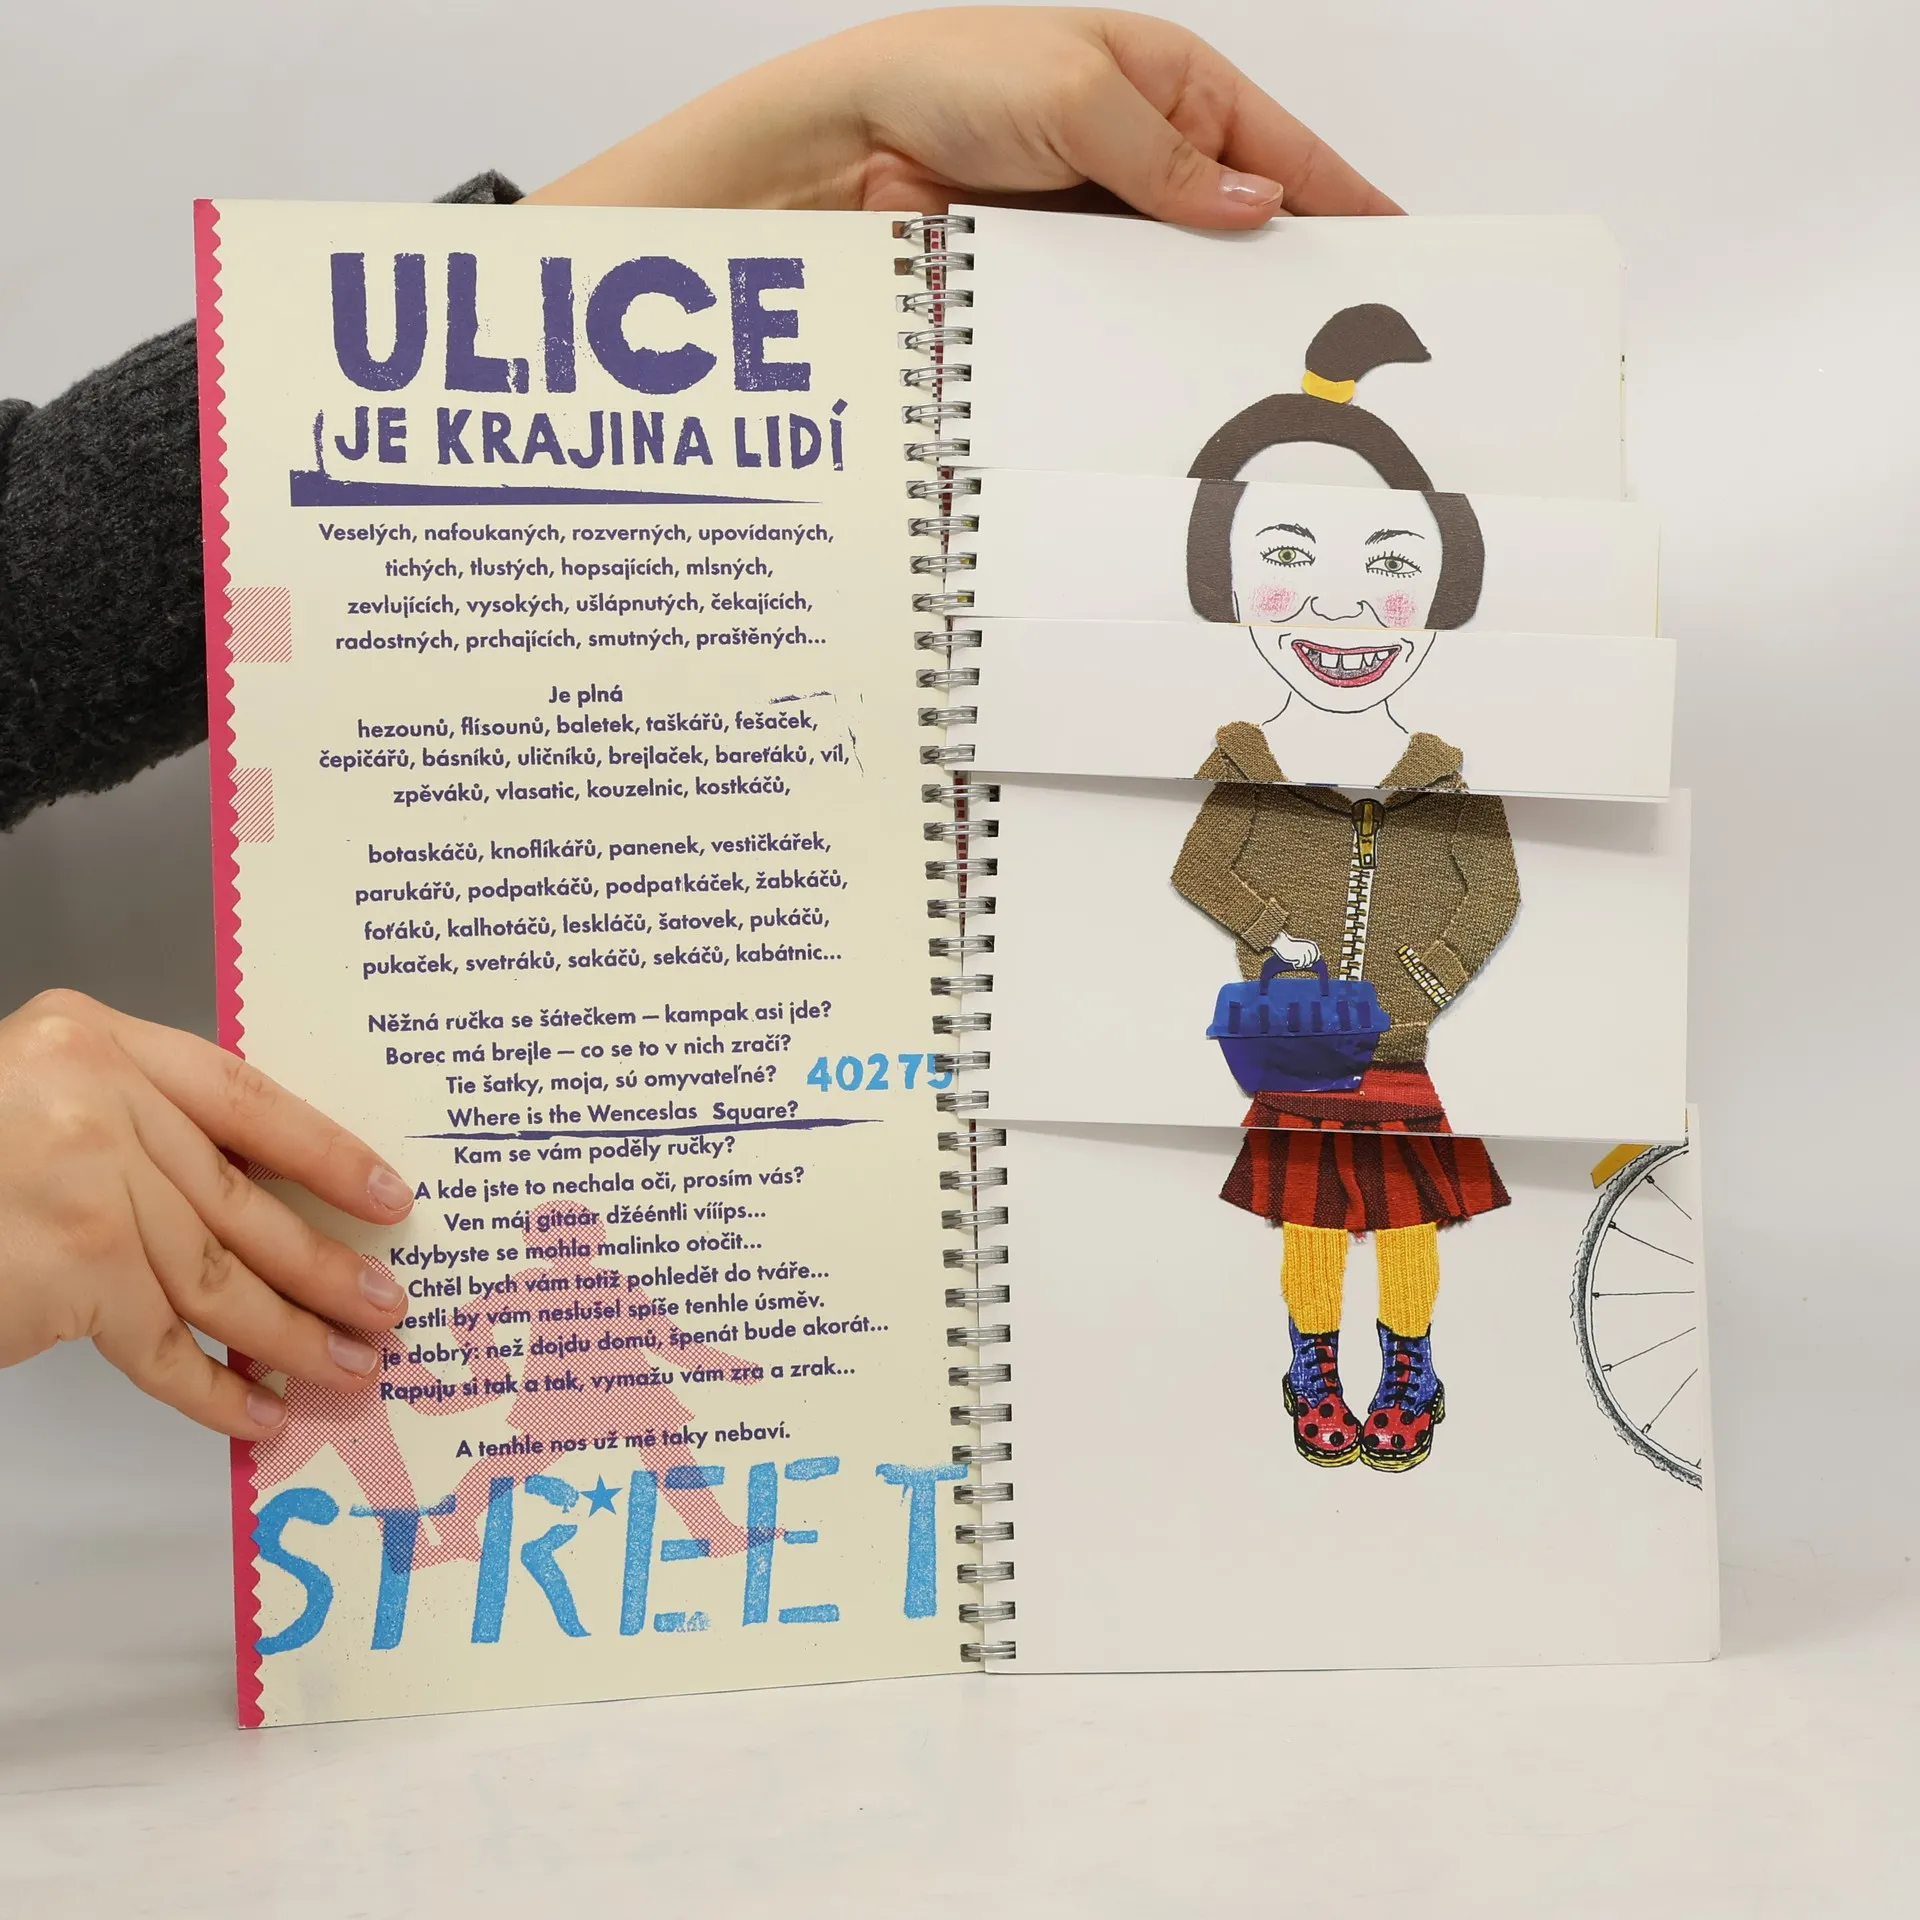 ULICE
JE KRAJINA LIDÍ
Veselých, nafoukaných, rozverných, upovídaných,
tichých, tlustých, hopsajících, mlsných,
zevlujících, vysokých, ušlápnutých, čekajících,
radostných, prchajících, smutných, praštěných...
Je plná
hezounů, flísounů, baletek, taškářů, fešaček,
čepičářů, básníků, uličníků, brejlaček, bareťáků, víl,
zpěváků, vlasatic, kouzelnic, kostkáčů,
botaskáčů, knoflíkářů, panenek, vestičkářek,
parukářů, podpatkáčů, podpatkáček, žabkáčů,
foťáků, kalhotáčů, leskláčů, šatovek, pukáčů,
pukaček, svetráků, sakáčů, sekáčů, kabátnic...
Něžná ručka se šátečkem – kampak asi jde?
Borec má brejle – co se to v nich zračí?
Tie šatky, moja, sú omyvateľné?
40275
Where is the Wenceslas Square?
Kam se vám poděly ručky?
A kde jste to nechala oči, prosím vás?
Ven máj gitáár džééntli víííps...
Kdybyste se mohla malinko otočit...
Chtěl bych vám totiž pohledět do tváře...
Jestli by vám neslušel spíše tenhle úsměv.
je dobrý: než dojdu domů, špenát bude akorát...
Rapuju si tak a tak, vymažu vám zra a zrak...
A tenhle nos už mě taky nebaví.
STREET